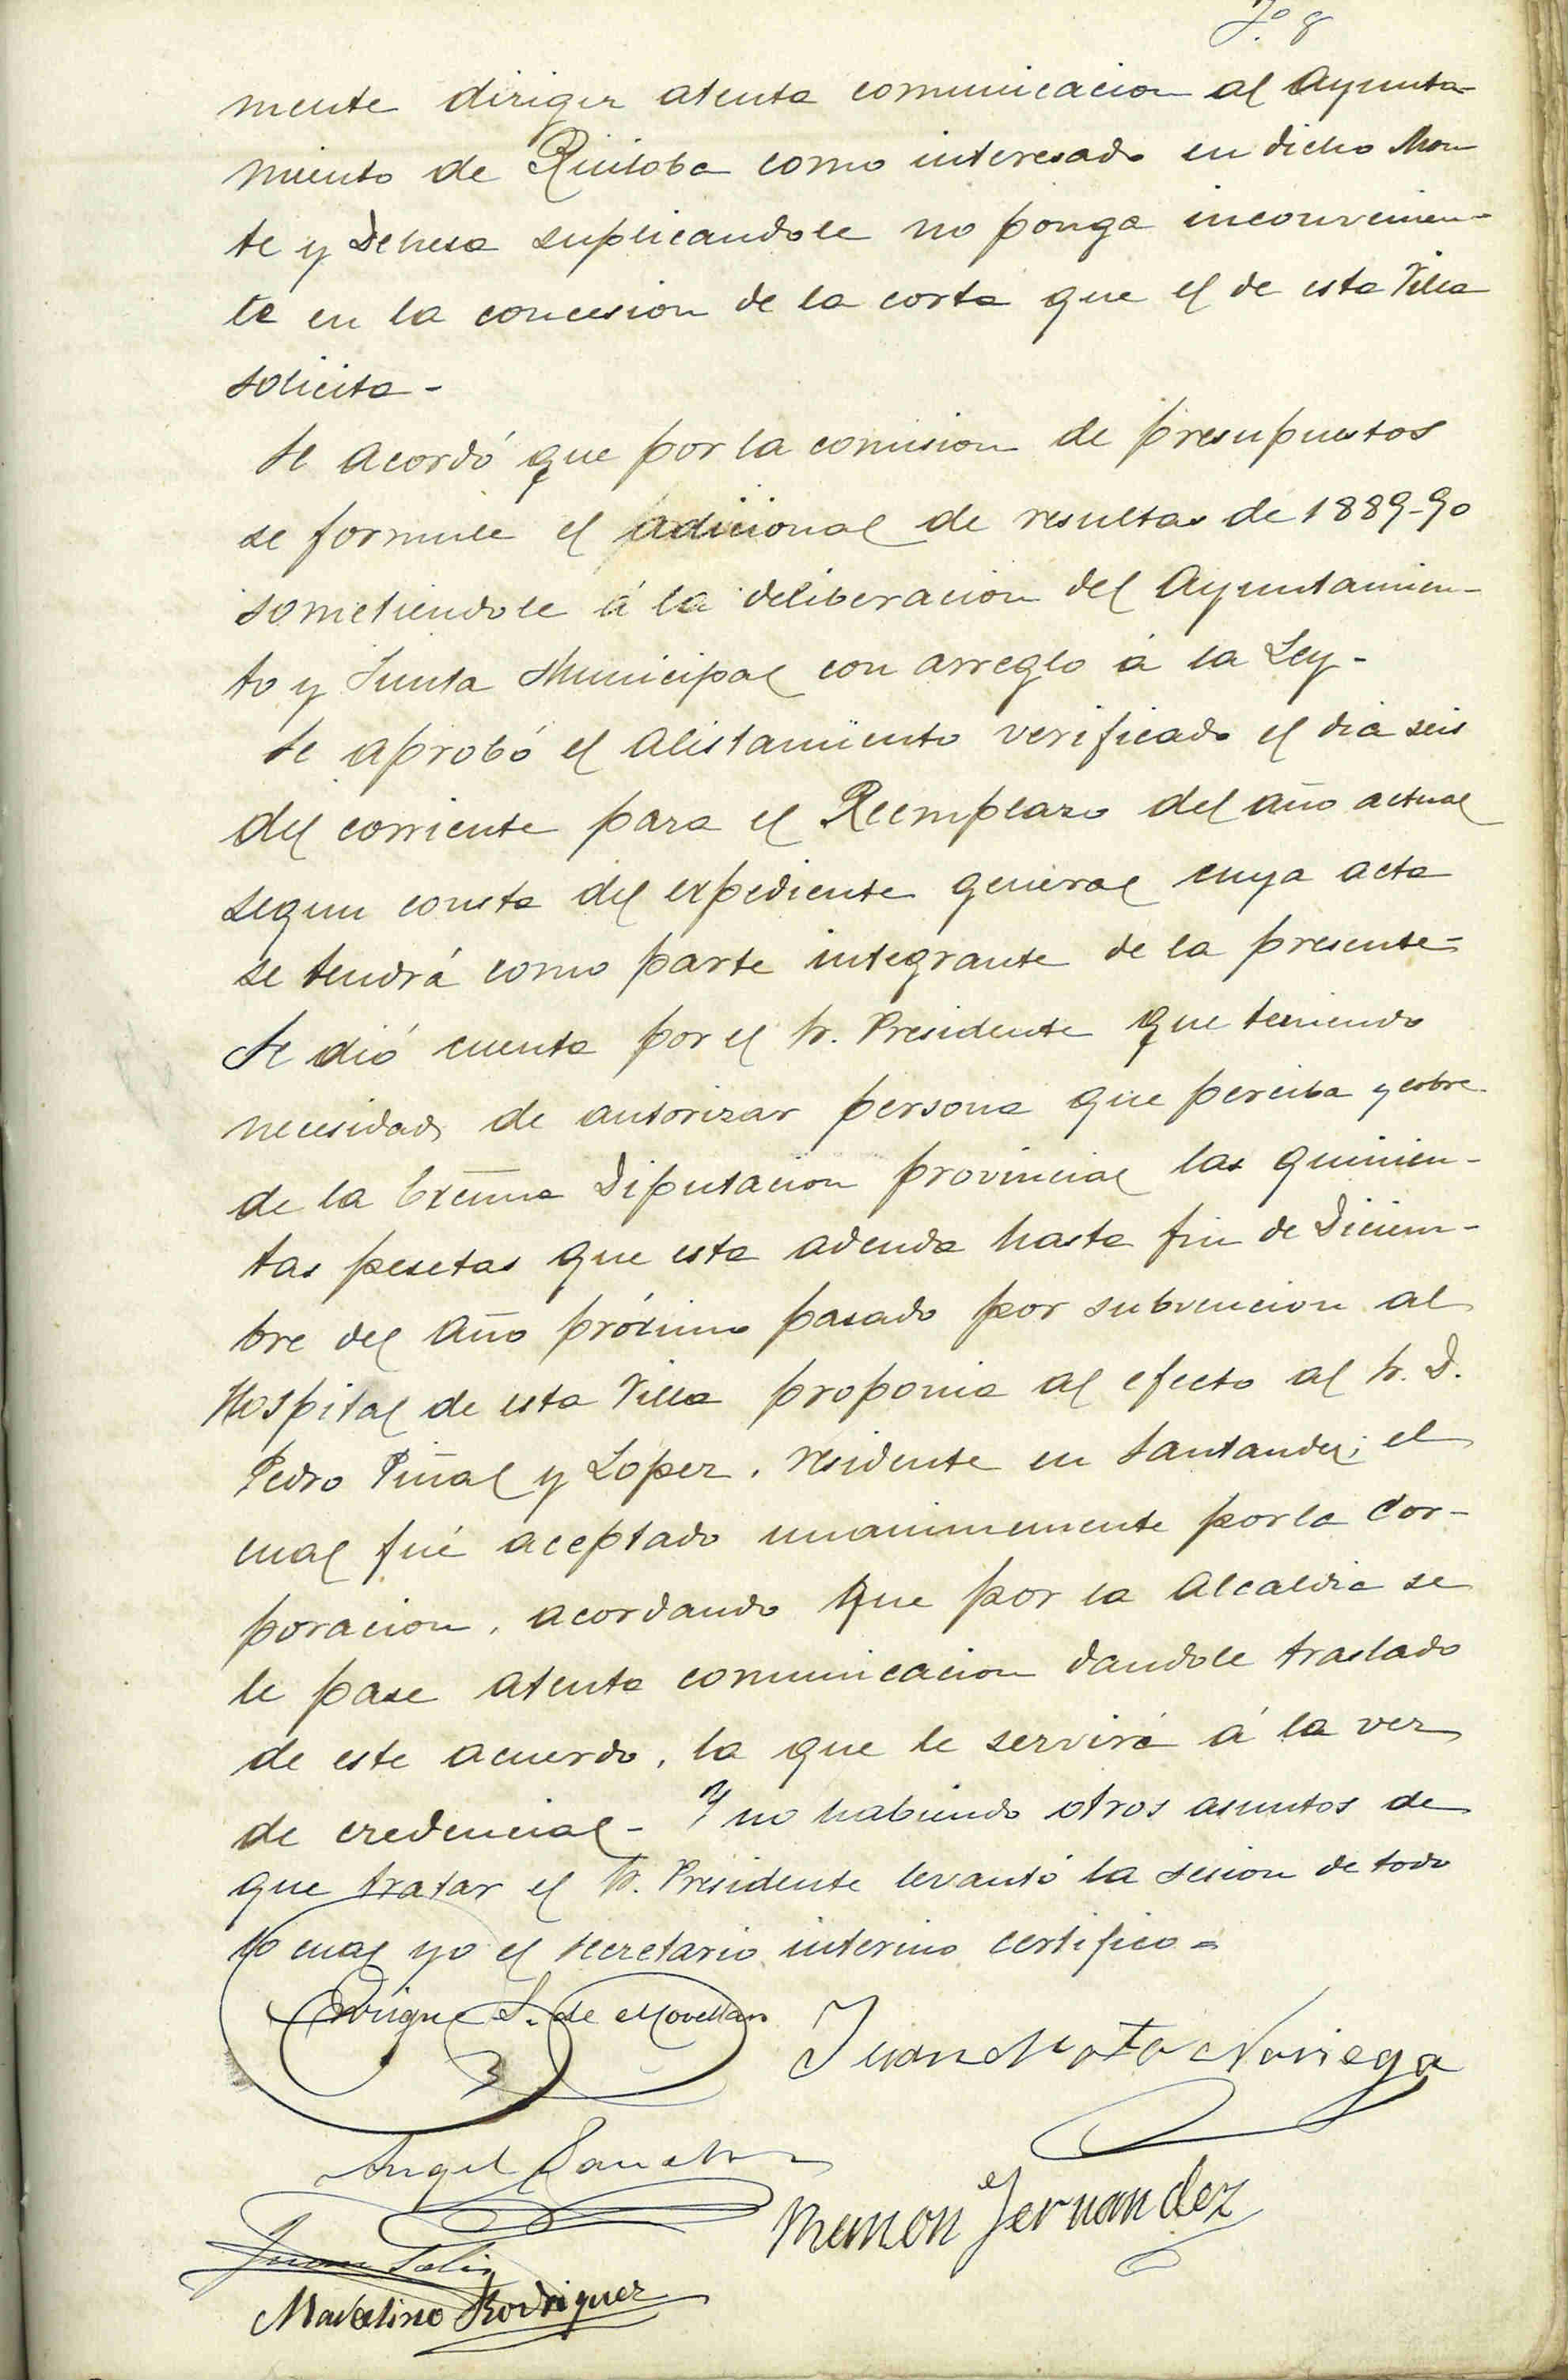 Fº. 8
mente dirigir atenta comunicacion al Ayunta-
miento de Ruiloba como interesado en dicho Mon
te y Dehesa suplicandole no ponga inconvenien-
te en la concesion de la corta que el de esta Villa
solicita-
Se acordó que por la comision de presupuestos
se formule el adicional de resultas de 1889-90
sometiendole á la deliberacion del Ayuntamien-
to y Junta Municipal con arreglo á la Ley-
Se aprobó el Alistamiento verificado el dia seis
del corriente para el Reemplazo del año actual
segun consta del expediente general cuya acta
se tendrá como parte integrante de la presente-
Se dió cuenta por el Sr. Presidente que teniendo
necesidad de autorizar persona que perciba y cobre
de la Excma Diputacion provincial las quinien-
tas pesetas que esta adeuda hasta fin de Diciem-
bre del año próximo pasado por subvencion al
Hospital de esta Villa proponia al efecto al Sr. D.
Pedro Piñal y Lopez, residente en Santander; el
cual fué aceptado unanimemente por la Cor-
poracion, acordando que por la Alcaldia se
le pase atenta comunicacion dandole traslado
de este acuerdo, la que le servirá á la vez
de credencial- Y no habiendo otros asuntos de
que tratar el Sr. Presidente levantó la sesion de todo
lo cual yo el secretario interino certifico=
Enrique S. de Movellan
Juan Noriega
Angel Sanchez
Ramon Fernandez
Juan
Marcelino Rodriguez